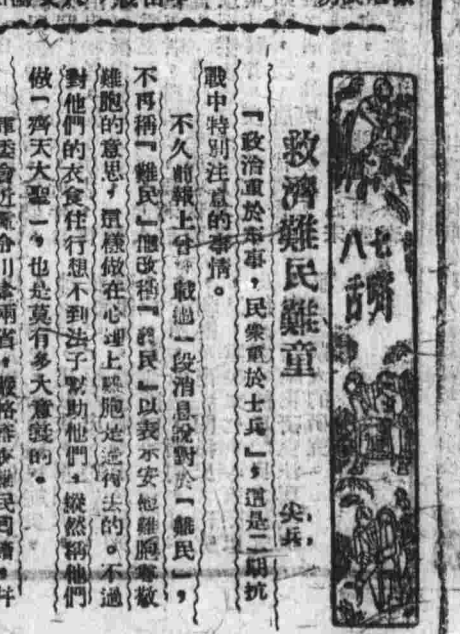 七嘴
八舌
救濟難民難童
尖兵
『政治重於軍事，民衆重於士兵』，這是二期抗
戰中特別注意的事情。
不久前報上曾載過一段消息說對於『難民』，
不再稱『難民』他改稱『義民』以表示安慰難胞尊敬
難胞的意思，這樣做在心理上難胞是過得去的。不過
對他們的衣食住行想不到法子幫助他們，縱然稱他們
做『齊天大聖』，也是莫有多大意義的。
川 兩省，嚴格 難民